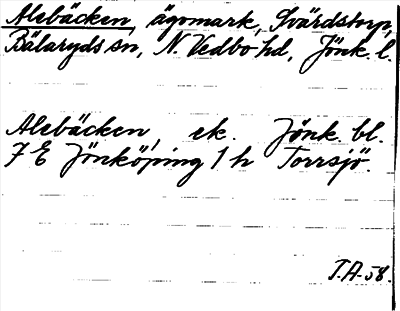 Alebäcken, ägomark, Svärdstorp,
Bälaryds sn, N. Vedbo hd, Jönk. l.
Alebäcken, ek. Jönk. bl.
7 E Jönköping 1 h Torrsjö.
T.A-58.